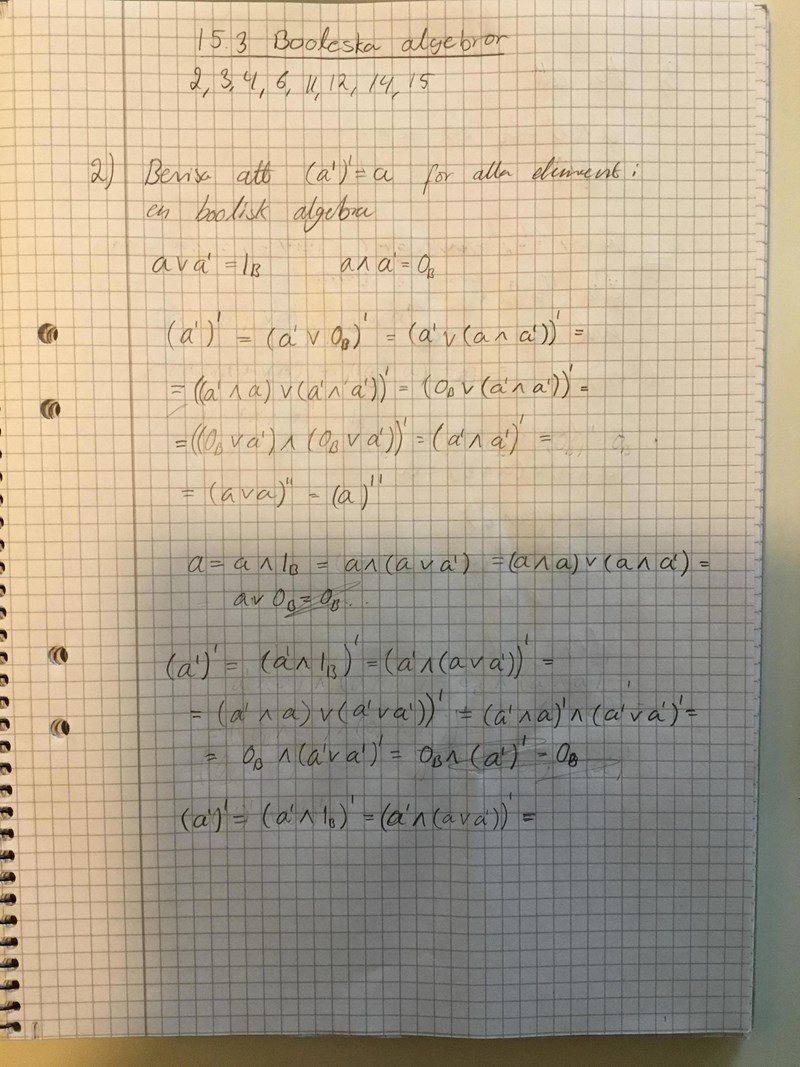 15.3 Booleska algebror
2, 3, 4, 6, 11, 12, 14, 15
2) Bevisa att (a')' = a för alla element i
en boolisk algebra
a∨a' = 1_B a∧a' = 0_B
(a')' = (a' ∨ 0_B)' = (a' ∨ (a ∧ a'))' =
= ((a' ∧ a) ∨ (a' ∧ a'))' = (0_B ∨ (a' ∧ a'))' =
= ((0_B ∨ a') ∧ (0_B ∨ a'))' = (a' ∧ a')' =
= (a∨a)'' = (a)''
a = a ∧ 1_B = a∧(a ∨ a') = (a∧a) ∨ (a∧a') =
a∨ 0_B = 0_B
(a')' = (a' ∧ 1_B)' = (a' ∧ (a∨a'))' =
= (a' ∧ a) ∨ (a' ∨ a'))' = (a' ∧ a)' ∧ (a' ∨ a')' =
= 0_B ∧ (a' ∨ a')' = 0_B ∧ (a')' = 0_B
(a')' = (a' ∧ 1_B)' = (a' ∧ (a∨a'))' =